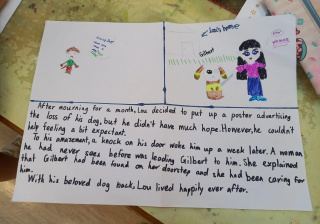 Lou's home
Gilbert
After mourning for a month, Lou decided to put up a poster advertising
the loss of his dog, but he didn't have much hope. However, he couldn't
help feeling a bit expectant.
To his amazement, a knock on his door woke him up a week later. A woman
he had never seen before was leading Gilbert to him. She explained
that Gilbert had been found on her doorstep and she had been caring for
him.
With his beloved dog back, Lou lived happily ever after.